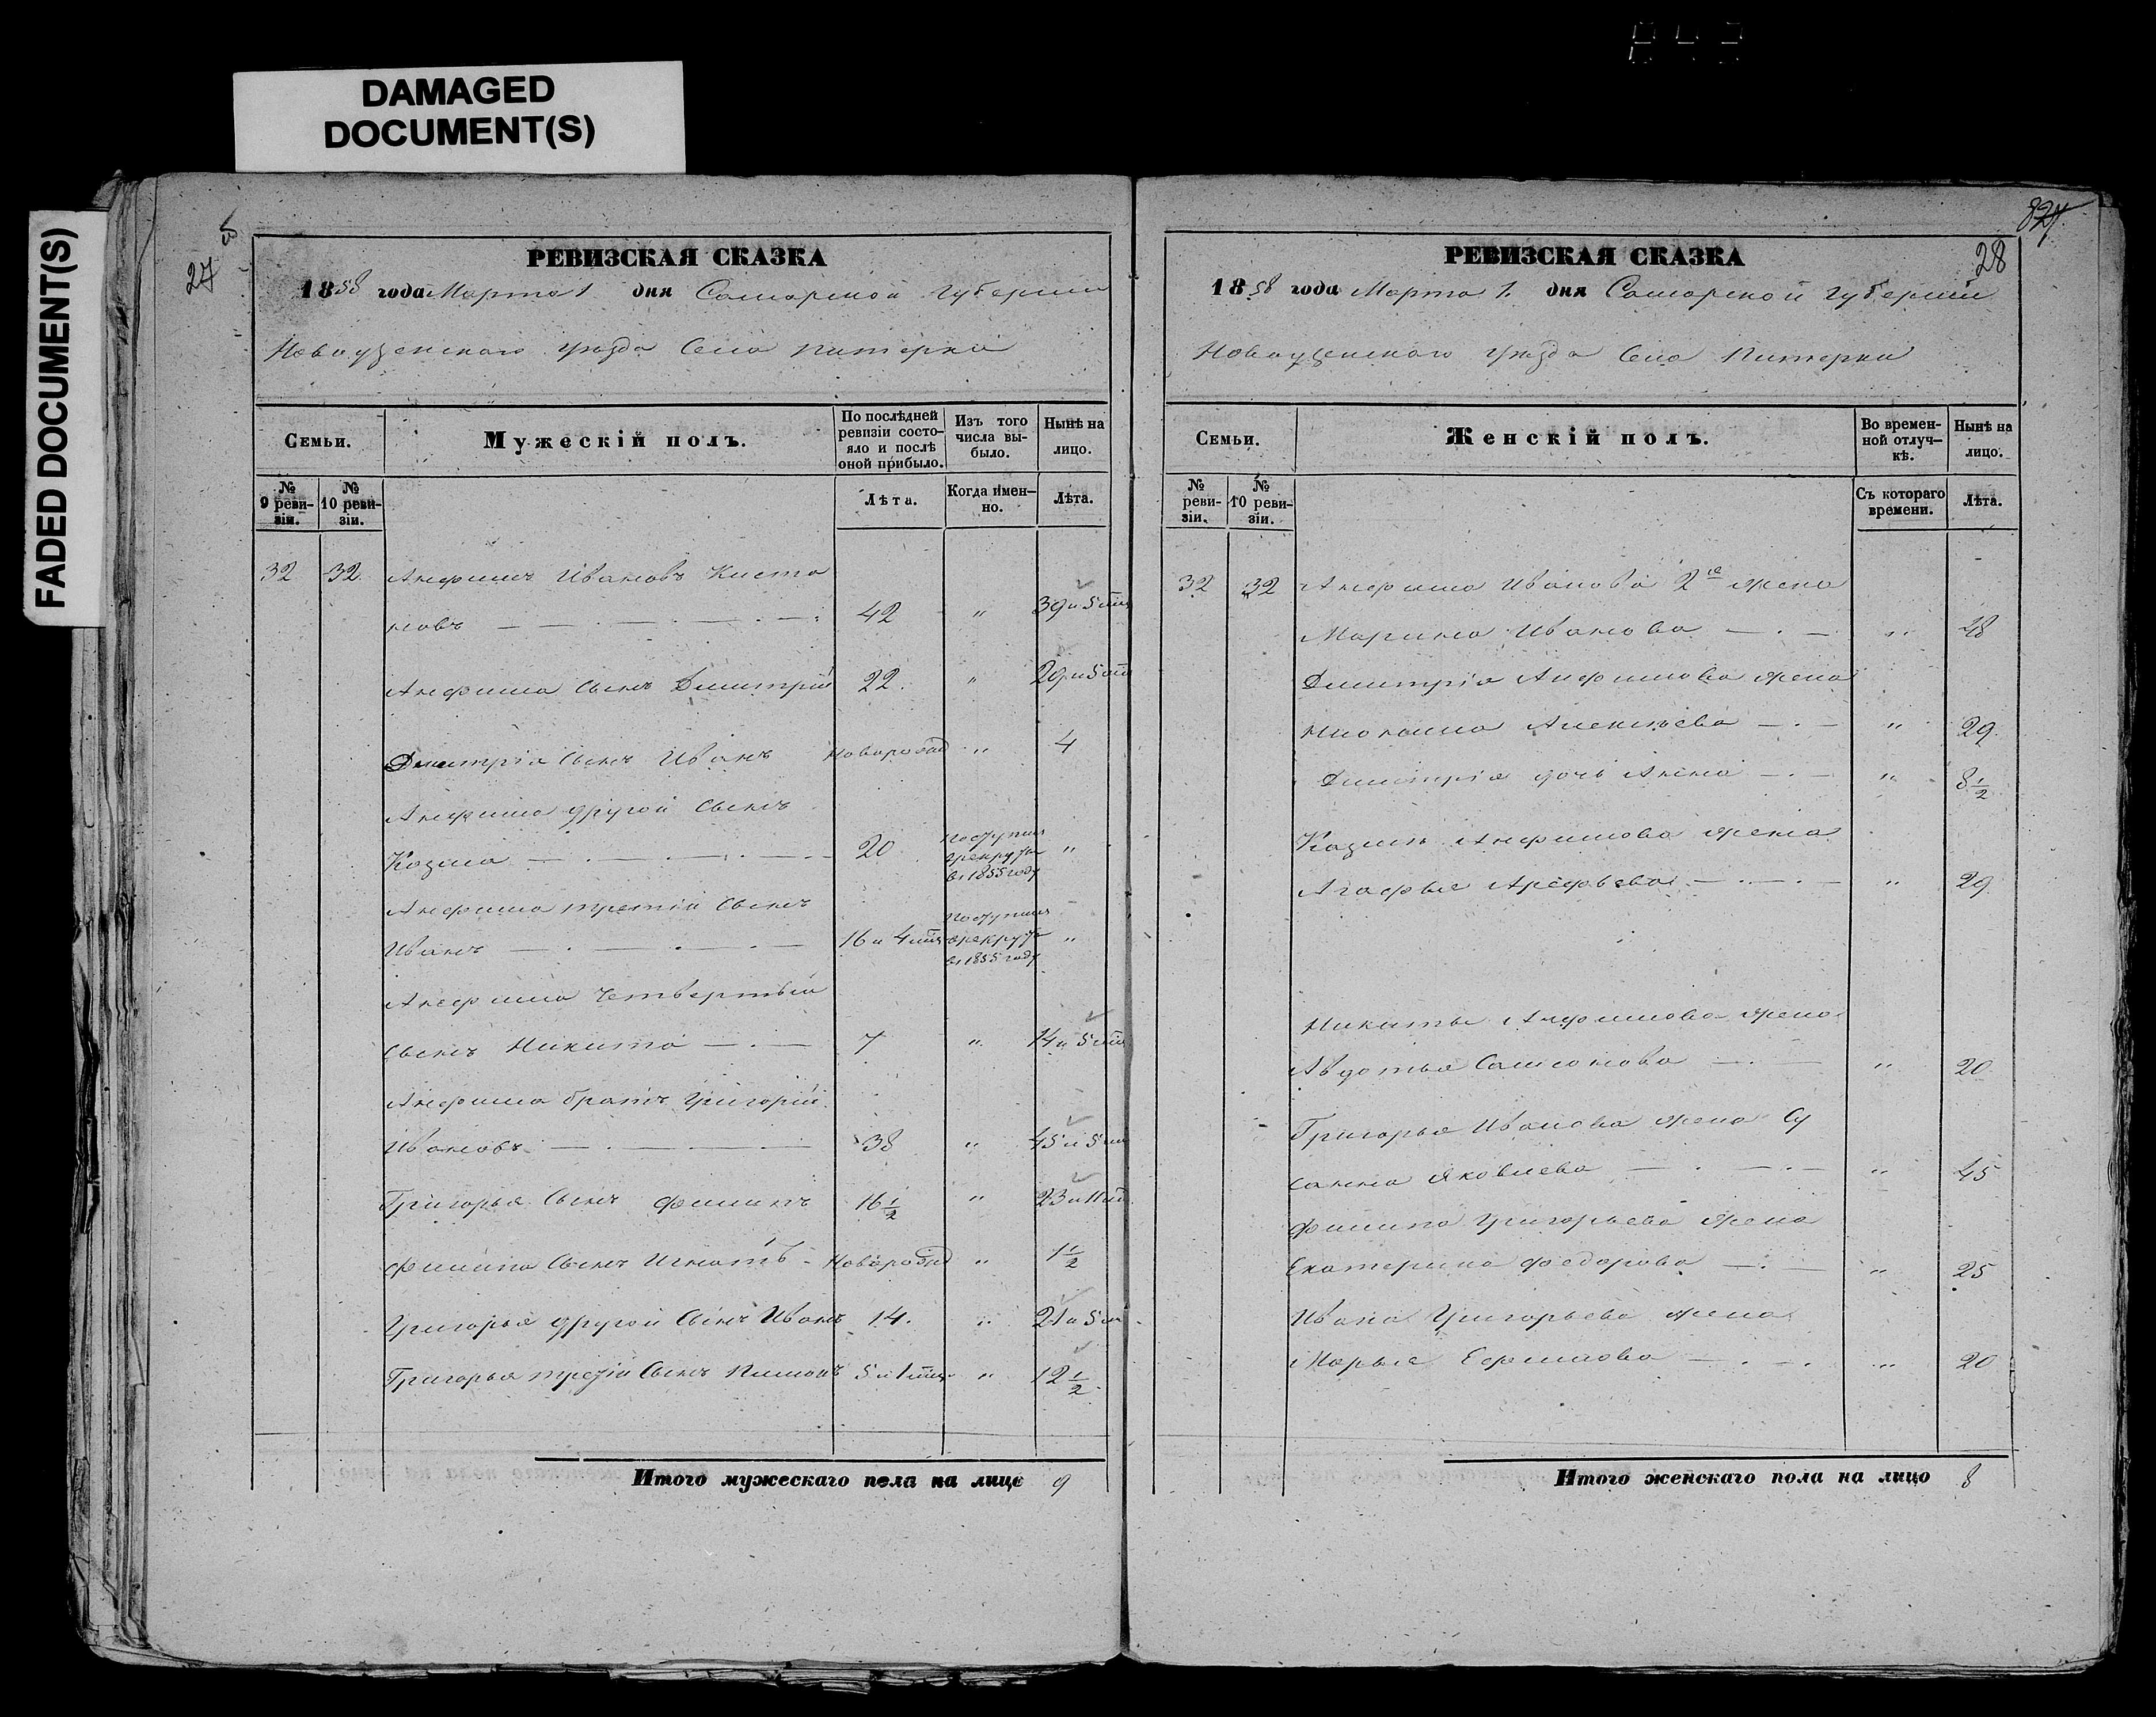 DAMAGED
DOCUMENT(S)
FADED DOCUMENT(S)
27
РЕВИЗСКАЯ СКАЗКА
1858 года Марта 1 дня Самарской Губернии
Новоузенского уѣзда Села Питерки
Семьи.
Мужескій полъ.
По послѣдней ревизіи состояло и послѣ оной прибыло.
Изъ того числа выбыло.
Нынѣ на лицо.
№ 9 ревизіи.
№ 10 ревизіи.
Лѣта.
Когда имен-но.
Лѣта.
32 32 Анфимъ Ивановъ Киста
новъ 42 " 39 и 5 мц
Анфима Сынъ Димитрій 22. " 29 и 5 мц
Димитрія Сынъ Иванъ Новорожд " 4
Анфима другой Сынъ
Козма 20 Поступил в рекруты в 1855 году "
Анфима третій Сынъ
Иванъ 16 и 4 мця Поступил в рекруты в 1855 году "
Анфима Четвертый
Сынъ Никита 7 " 14 и 5 мц
Анфима братъ Григорій
Ивановъ 38 " 45 и 5 мц
Григорья Сынъ Филипъ 16 1/2 " 23 и 11 мц
Филипа Сынъ Игнатъ Новорожд " 1 1/2
Григорья другой Сынъ Иванъ 14. " 21 и 5 м
Григорья третій Сынъ Пименъ 5 и 1 мця " 12 1/2
Итого мужескаго пола на лицо 9
827
28
РЕВИЗСКАЯ СКАЗКА
1858 года Марта 1. дня Самарской Губерніи
Новоузенского уѣзда Села Питерки
Семьи.
Женскій полъ.
Во времен-ной отлуч-кѣ.
Нынѣ на лицо.
№ реви-зіи.
№ 10 реви-зіи.
Съ котораго времени.
Лѣта.
32 32 Анфима Иванова 2я жена
Марина Иванова " 48
Димитрія Анфимова жена
Алексѣева " 29.
Димитрія дочь Анна " 8 1/2
Козмы Анфимова жена
Агафья Арефьева " 29
Никиты Анфимова жена
Авдотья Самсонова " 20
Григорья Иванова жена Су
санна Яковлева " 45
Филипа Григорьева жена
Екатерина Федорова " 25
Ивана Григорьева жена
Марья Ефимова " 20
Итого женскаго пола на лицо 8